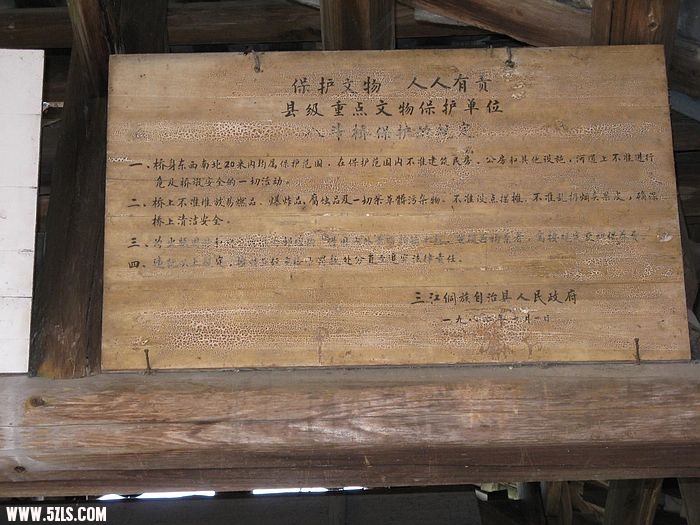 保护文物 人人有责
县级重点文物保护单位
八斗桥保护的规定
一、桥身东西南北20米内均属保护范围，在保护范围内不准建筑民房、公房和其他设施，河道上不准进行
危及桥梁安全的一切活动。
二、桥上不准堆放易燃品、爆炸品、腐蚀品及一切柴草脏污染物。不准设点摆摊，不准乱扔烟头果皮，确保
桥上清洁安全。
三、
四、违犯以上规定，追究法律责任。
三江侗族自治县人民政府
一九八 年 月一日
WWW.5ZLS.COM